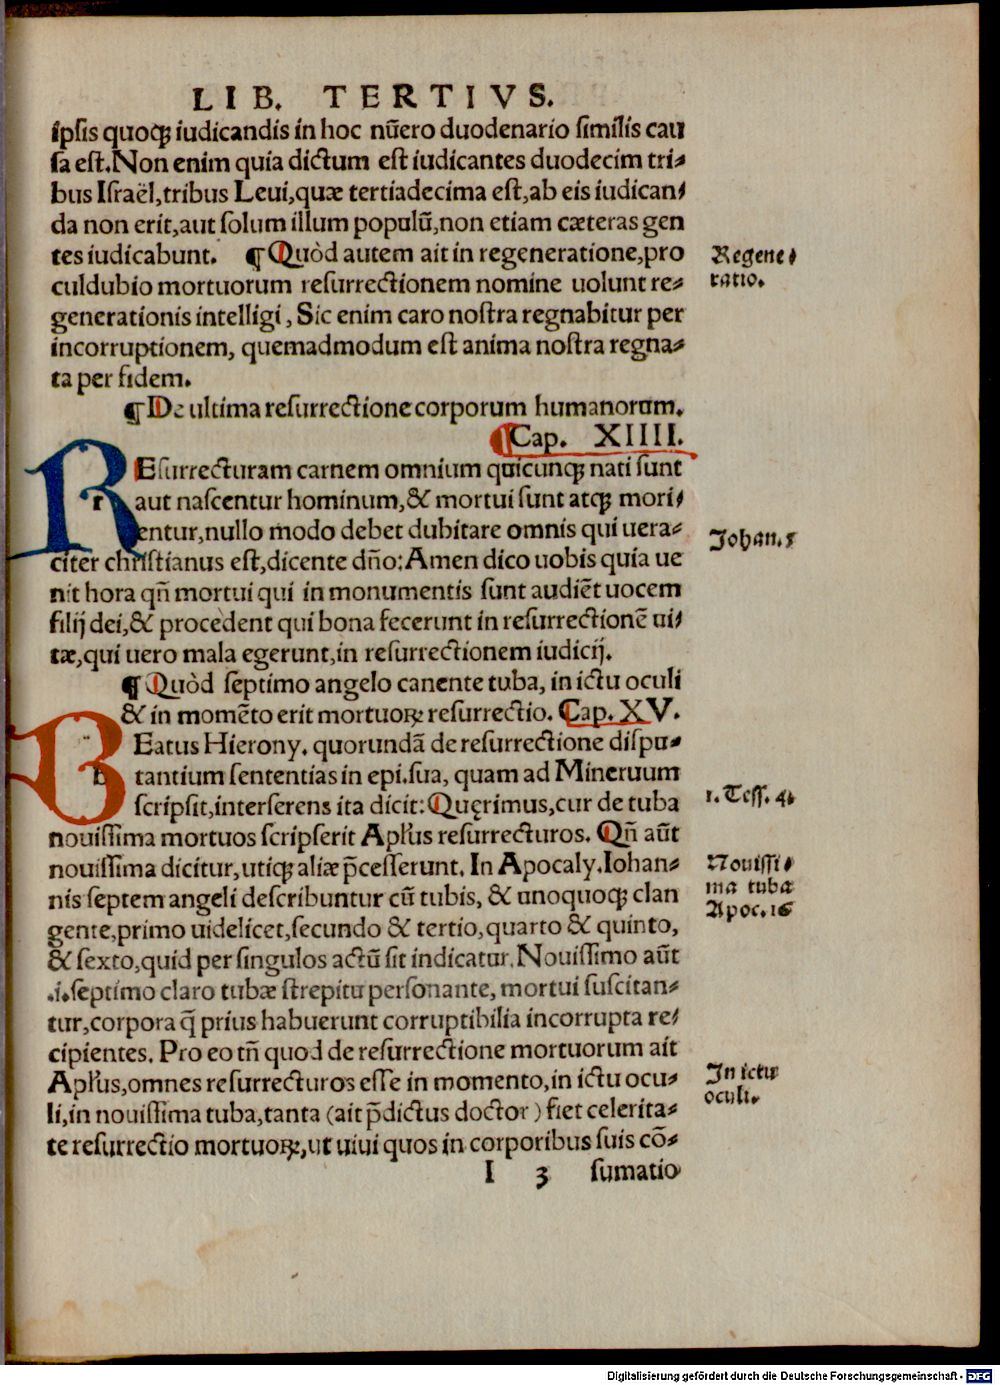 LIB. TERTIVS.
ipsis quoqꝫ iudicandis in hoc nũero duodenario similis cau
sa est. Non enim quia dictum est iudicantes duodecim tri-
bus Israël, tribus Leui, quæ tertiadecima est, ab eis iudican-
da non erit, aut solum illum populũ, non etiam cæteras gen
tes iudicabunt. ¶ Quòd autem ait in regeneratione, pro
culdubio mortuorum resurrectionem nomine uolunt re-
generationis intelligi, Sic enim caro nostra regnabitur per
incorruptionem, quemadmodum est anima nostra regna-
ta per fidem.
Regene-
ratio.
¶ De ultima resurrectione corporum humanorum.
¶ Cap. XIIII.
REsurrecturam carnem omnium quicunqꝫ nati sunt
aut nascentur hominum, & mortui sunt atqꝫ mori-
entur, nullo modo debet dubitare omnis qui uera-
citer christianus est, dicente dño: Amen dico uobis quia ue
nit hora qñ mortui qui in monumentis sunt audiẽt uocem
filij dei, & procedent qui bona fecerunt in resurrectionẽ ui-
tæ, qui uero mala egerunt, in resurrectionem iudicij.
Johan. 5
¶ Quòd septimo angelo canente tuba, in ictu oculi
& in momẽto erit mortuoꝝ resurrectio. Cap. XV.
BEatus Hierony. quorundã de resurrectione dispu-
tantium sententias in epi. sua, quam ad Mineruum
scripsit, interserens ita dicit: Quęrimus, cur de tuba
nouissima mortuos scripserit Apl'us resurrecturos. Qñ aũt
nouissima dicitur, utiqꝫ aliæ p̃cesserunt. In Apocaly. Iohan-
nis septem angeli describuntur cũ tubis, & unoquoqꝫ clan
gente, primo uidelicet, secundo & tertio, quarto & quinto,
& sexto, quid per singulos actũ sit indicatur. Nouissimo aũt
.i. septimo claro tubæ strepitu personante, mortui suscitan-
tur, corpora q̃ prius habuerunt corruptibilia incorrupta re-
cipientes. Pro eo tñ quod de resurrectione mortuorum ait
Apl'us, omnes resurrecturos esse in momento, in ictu ocu-
li, in nouissima tuba, tanta (ait p̃dictus doctor) fiet celerita-
te resurrectio mortuoꝝ, ut uiui quos in corporibus suis cõ-
1. Tess. 4.
Nouissi-
ma tuba
Apoc. 16
In ictu
oculi.
I 3 sumatio
Digitalisierung gefördert durch die Deutsche Forschungsgemeinschaft - DFG